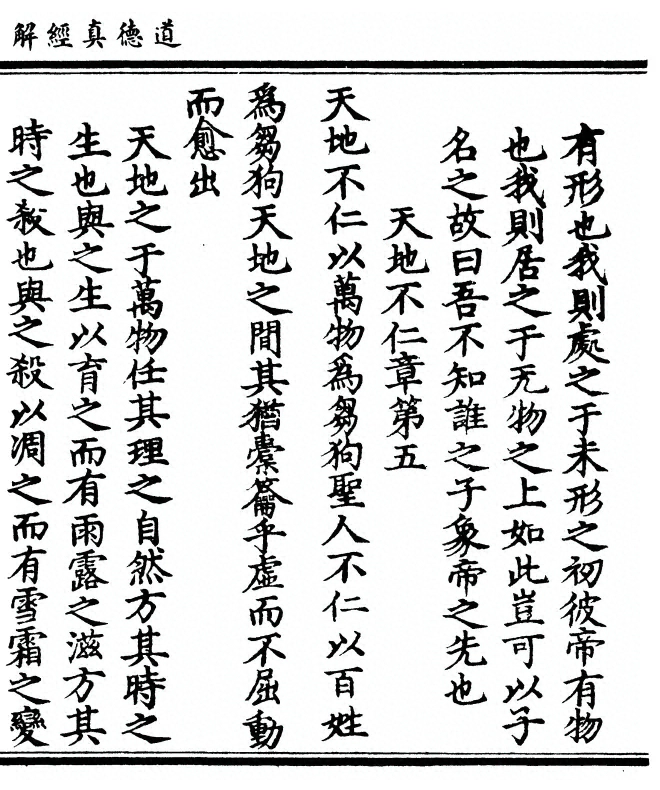 道德真經解
有形也我則處之于未形之初彼帝有物
也我則居之于无物之上如此豈可以子
名之故曰吾不知誰之子象帝之先也
天地不仁章第五
天地不仁以萬物爲芻狗聖人不仁以百姓
爲芻狗天地之間其猶橐籥乎虛而不屈動
而愈出
天地之于萬物任其理之自然方其時之
生也與之生以育之而有雨露之滋方其
時之殺也與之殺以凋之而有雪霜之變